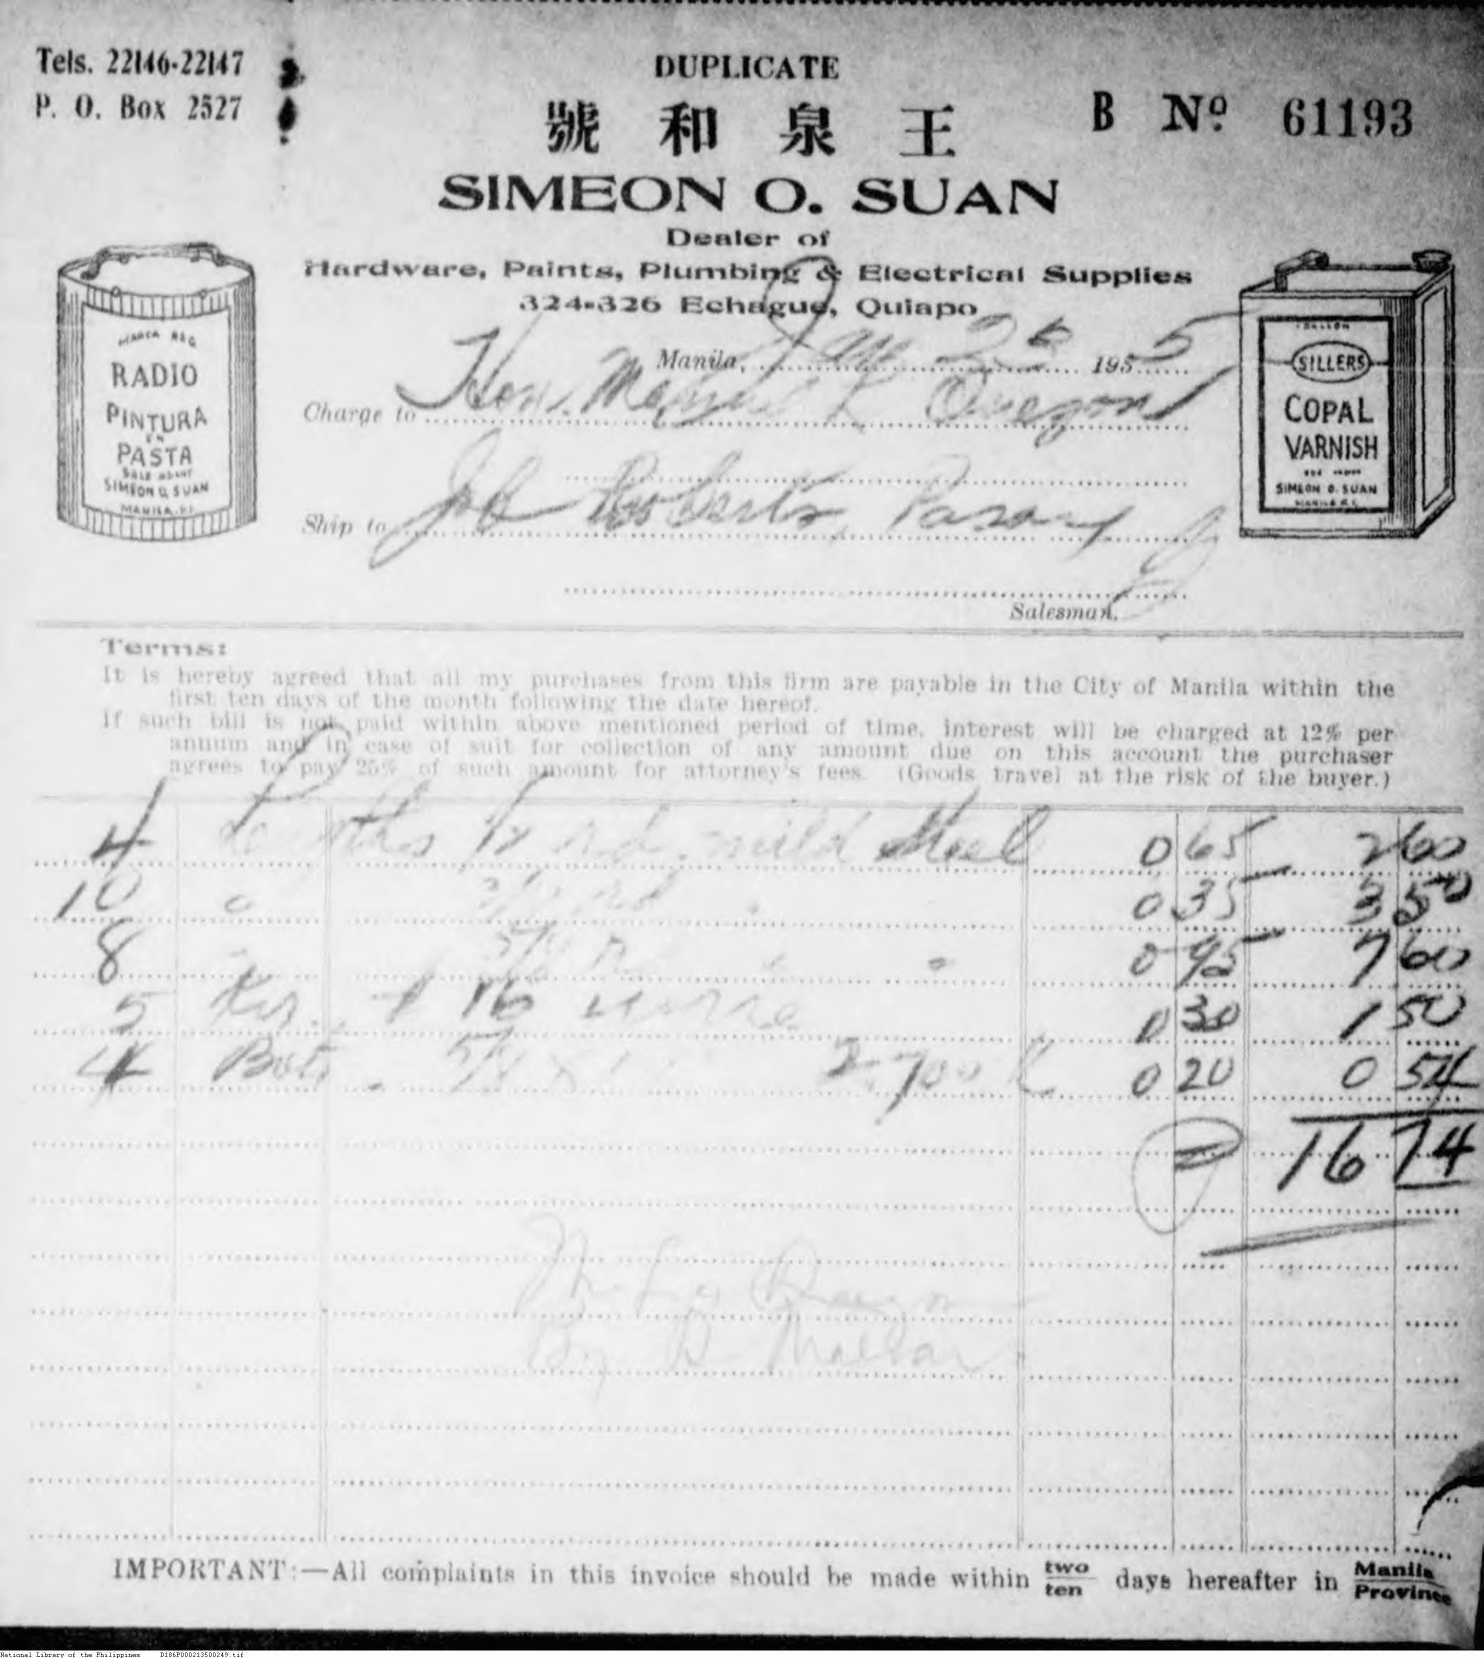 Tels. 22146-22147
P. O. Box 2527
DUPLICATE
號和泉王
B No. 61193
SIMEON O. SUAN
Dealer of
Hardware, Paints, Plumbing & Electrical Supplies
324-326 Echague, Quiapo
MARCA REG
RADIO
PINTURA
EN
PASTA
SOLE AGENT
SIMEON O. SUAN
MANILA, P.I.
1 GALLON
SILLERS
COPAL
VARNISH
SIMEON O. SUAN
MANILA P.I.
Manila, Jan 1935
Charge to Hon. Manuel L Quezon
Ship to Job Roberts, Pasay
Salesman.
Terms:
It is hereby agreed that all my purchases from this firm are payable in the City of Manila within the
first ten days of the month following the date hereof.
If such bill is not paid within above mentioned period of time, interest will be charged at 12% per
annum and in case of suit for collection of any amount due on this account the purchaser
agrees to pay 25% of such amount for attorney's fees. (Goods travel at the risk of the buyer.)
4 Lengths 1/2 rd. mild steel 0 65 2 60
10 " 3/8 rd " 0 35 3 50
8 " 5/8 " " 0 95 7 60
5 # 16 wire 0 30 1 50
4 5/8 x 2.700 K 0 20 0 54
16 74
By
IMPORTANT:—All complaints in this invoice should be made within two/ten days hereafter in Manila/Province
National Library of the Philippines D186P000213500249.tif